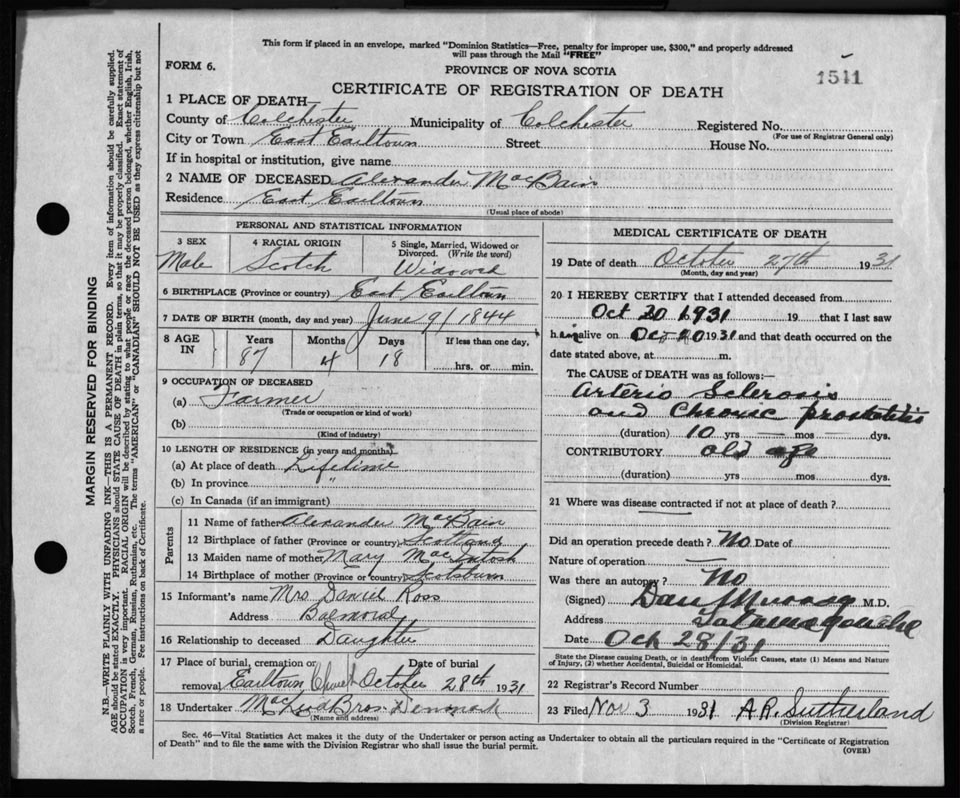 This form if placed in an envelope, marked "Dominion Statistics—Free, penalty for improper use, $300," and properly addressed
will pass through the Mail "FREE"
FORM 6.
PROVINCE OF NOVA SCOTIA
1511
CERTIFICATE OF REGISTRATION OF DEATH
1 PLACE OF DEATH
County of Colchester Municipality of Colchester Registered No.
(For use of Registrar General only)
City or Town East Earltown Street House No.
If in hospital or institution, give name
2 NAME OF DECEASED Alexander MacBain
Residence East Earltown
(Usual place of abode)
PERSONAL AND STATISTICAL INFORMATION
3 SEX 4 RACIAL ORIGIN 5 Single, Married, Widowed or
Divorced. (Write the word)
Male Scotch Widowed
6 BIRTHPLACE (Province or country) East Earltown
7 DATE OF BIRTH (month, day and year) June 9/1844
8 AGE IN Years Months Days If less than one day,
87 4 18 hrs. or min.
9 OCCUPATION OF DECEASED
(a) Farmer
(Trade or occupation or kind of work)
(b)
(Kind of industry)
10 LENGTH OF RESIDENCE (in years and months)
(a) At place of death Lifetime
(b) In province "
(c) In Canada (if an immigrant)
Parents
11 Name of father Alexander MacBain
12 Birthplace of father (Province or country) Scotland
13 Maiden name of mother Mary MacIntosh
14 Birthplace of mother (Province or country) Scotsburn
15 Informant's name Mrs Daniel Ross
Address Balmoral
16 Relationship to deceased Daughter
17 Place of burial, cremation or Date of burial
removal Earltown October 28th 1931
18 Undertaker MacLeod Bros Denmark
(Name and address)
MEDICAL CERTIFICATE OF DEATH
19 Date of death October 27th 1931
(Month, day and year)
20 I HEREBY CERTIFY that I attended deceased from
Oct 20 1931 19 that I last saw
h im alive on Oct 20 1931 and that death occurred on the
date stated above, at m.
The CAUSE of DEATH was as follows:
Arterio Sclerosis
and Chronic prostatitis
(duration) 10 yrs mos dys.
CONTRIBUTORY old age
(duration) yrs mos dys.
21 Where was disease contracted if not at place of death?
Did an operation precede death? No Date of
Nature of operation
Was there an autopsy? No
(Signed) Dan Murray M.D.
Address Tatamagouche
Date Oct 28/31
State the Disease causing Death, or in death from Violent Causes, state (1) Means and Nature
of Injury, (2) whether Accidental, Suicidal or Homicidal.
22 Registrar's Record Number
23 Filed Nov 3 1931 A.R. Sutherland
(Division Registrar)
Sec. 46—Vital Statistics Act makes it the duty of the Undertaker or person acting as Undertaker to obtain all the particulars required in the "Certificate of Registration
of Death" and to file the same with the Division Registrar who shall issue the burial permit.
(OVER)
MARGIN RESERVED FOR BINDING
N.B.—WRITE PLAINLY WITH UNFADING INK—THIS IS A PERMANENT RECORD. Every item of information should be carefully supplied.
AGE should be stated EXACTLY. PHYSICIANS should STATE CAUSE OF DEATH in plain terms, so that it may be properly classified. Exact statement of
OCCUPATION is very important. RACIAL ORIGIN will be described by stating to what people or race the deceased person belonged, whether English, Irish,
Scotch, French, German, Russian, Ruthenian, etc. The terms "AMERICAN" or "CANADIAN" SHOULD NOT BE USED as they express citizenship but not
a race or people. Fee instructions on back of Certificate.